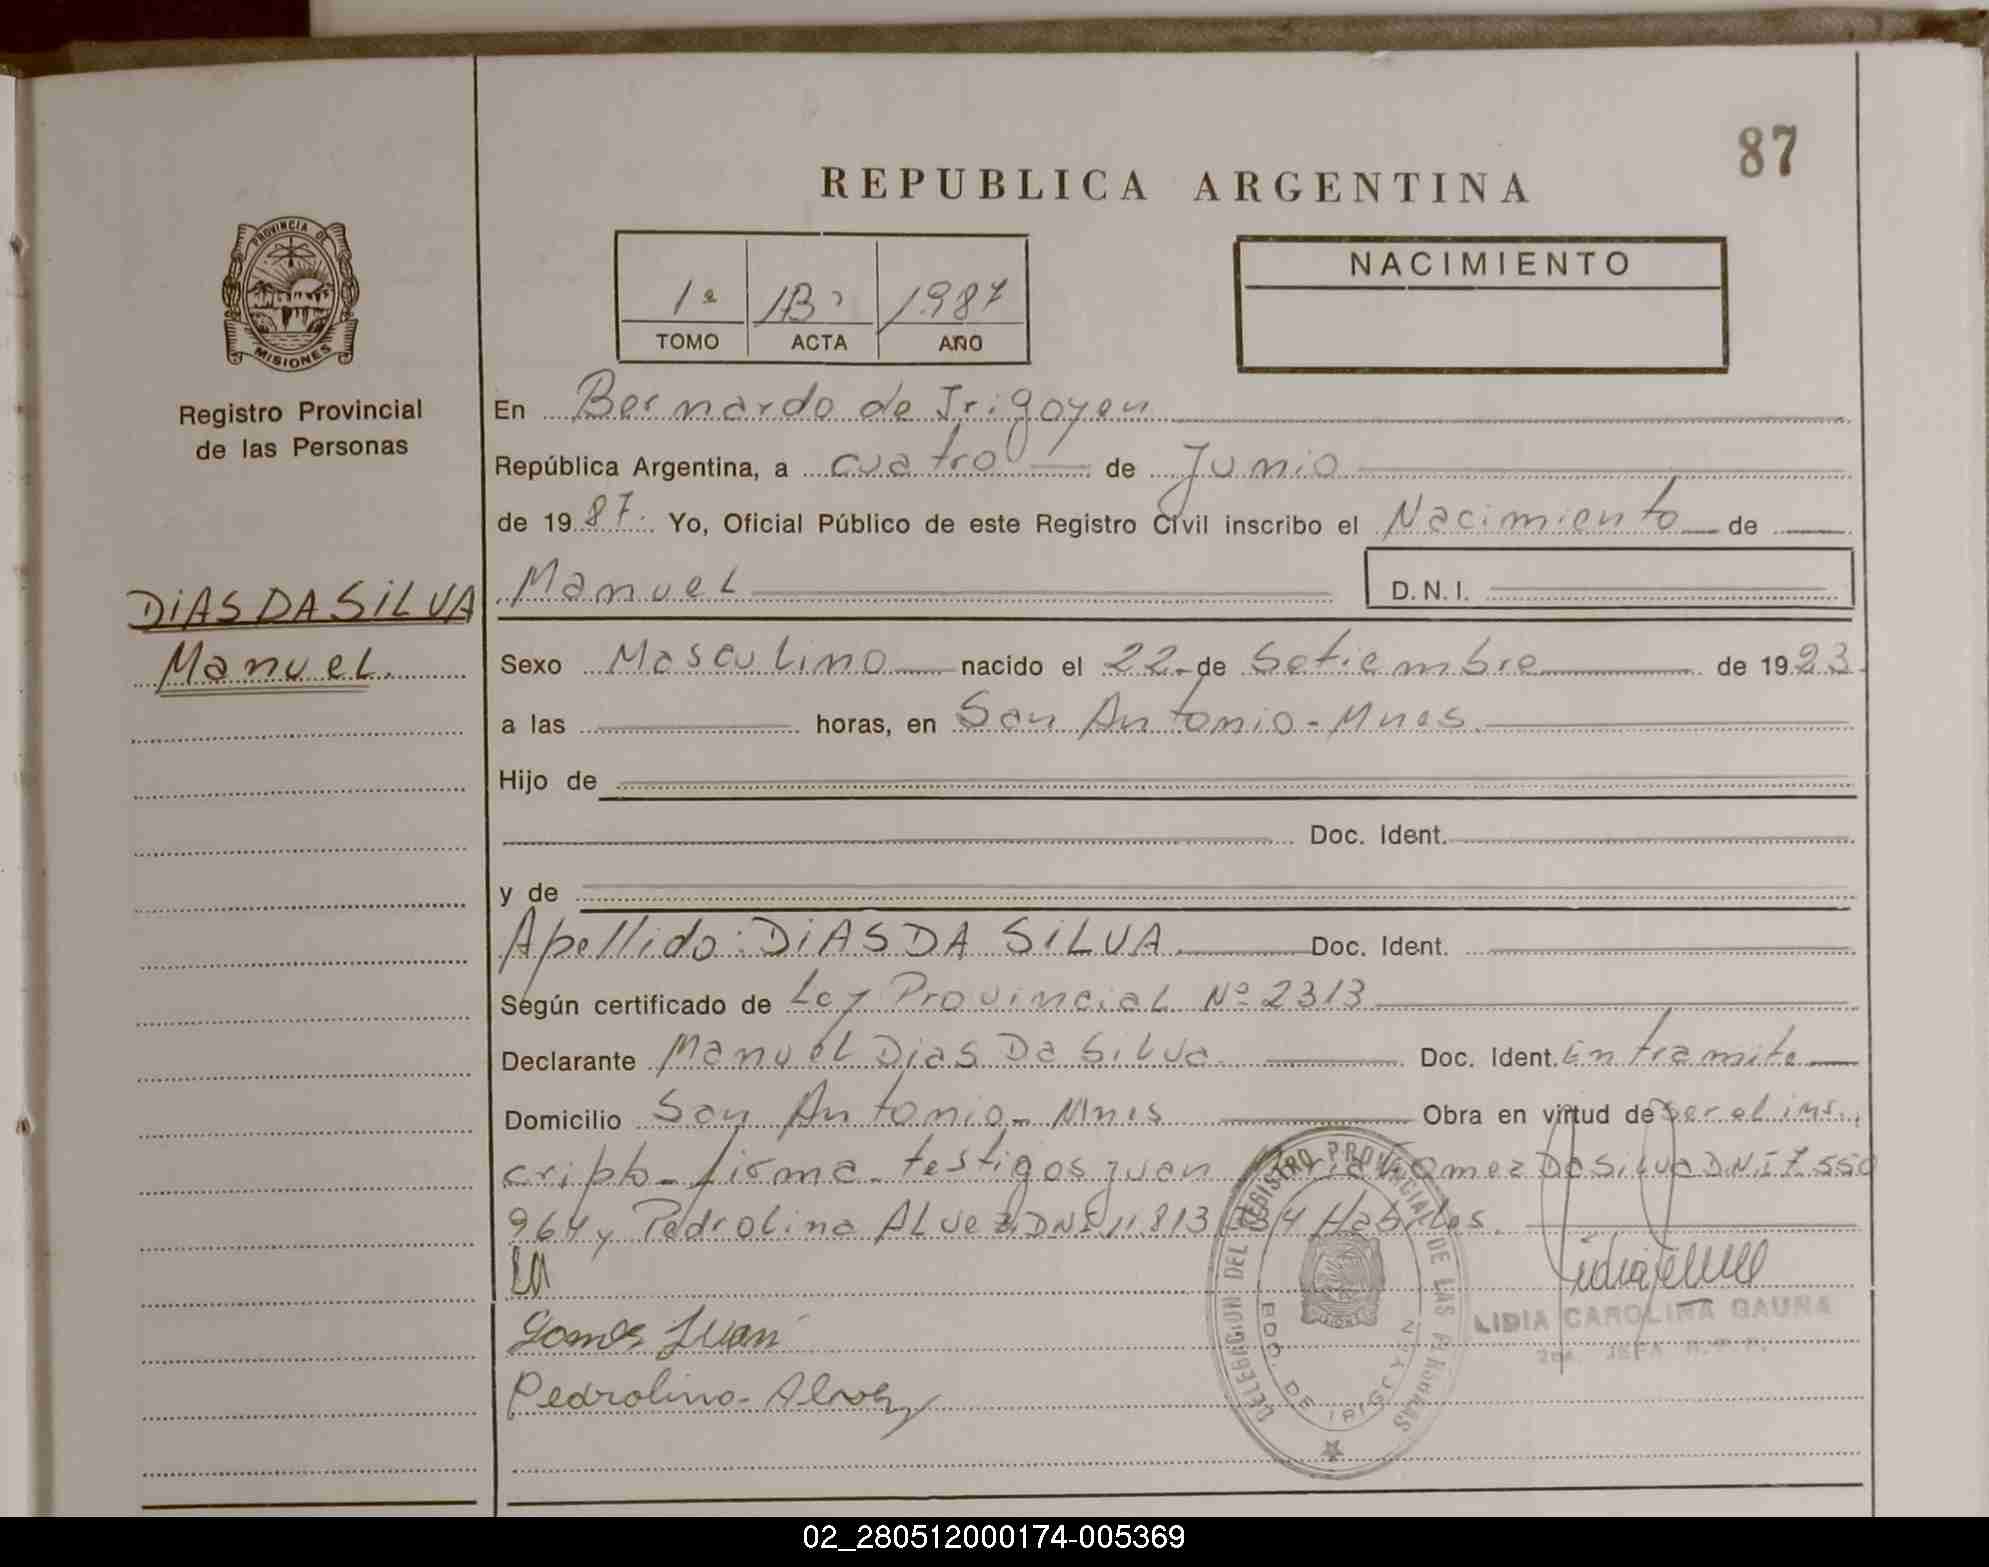 87
REPUBLICA ARGENTINA
PROVINCIA DE
MISIONES
Registro Provincial
de las Personas
1ª 1987
TOMO ACTA AÑO
NACIMIENTO
En Bernardo de Irigoyen
República Argentina, a cuatro de Junio
de 1987. Yo, Oficial Público de este Registro Civil inscribo el Nacimiento de
DIAS DA SILVA
Manuel
Manuel D.N.I.
Sexo Masculino nacido el 22 de Setiembre de 1923.
a las horas, en San Antonio - Mnes.
Hijo de
Doc. Ident.
y de
Apellido: DIAS DA SILVA Doc. Ident.
Según certificado de Ley Provincial Nº 2313
Declarante Manuel Dias Da Silva Doc. Ident. En tramite
Domicilio San Antonio - Mnes Obra en virtud de ser el ins-
cripto - firma - testigos Juan Gomez Da Silva DNI 7.550
964 y Pedrolina Alvez DNI 11.813 Habiles.
Gomes Juan
Pedrolina Alvez
DELEGACION DEL REGISTRO PROVINCIAL DE LAS PERSONAS
BDO. DE IRIGOYEN
LIDIA CAROLINA GAUNA
02_280512000174-005369